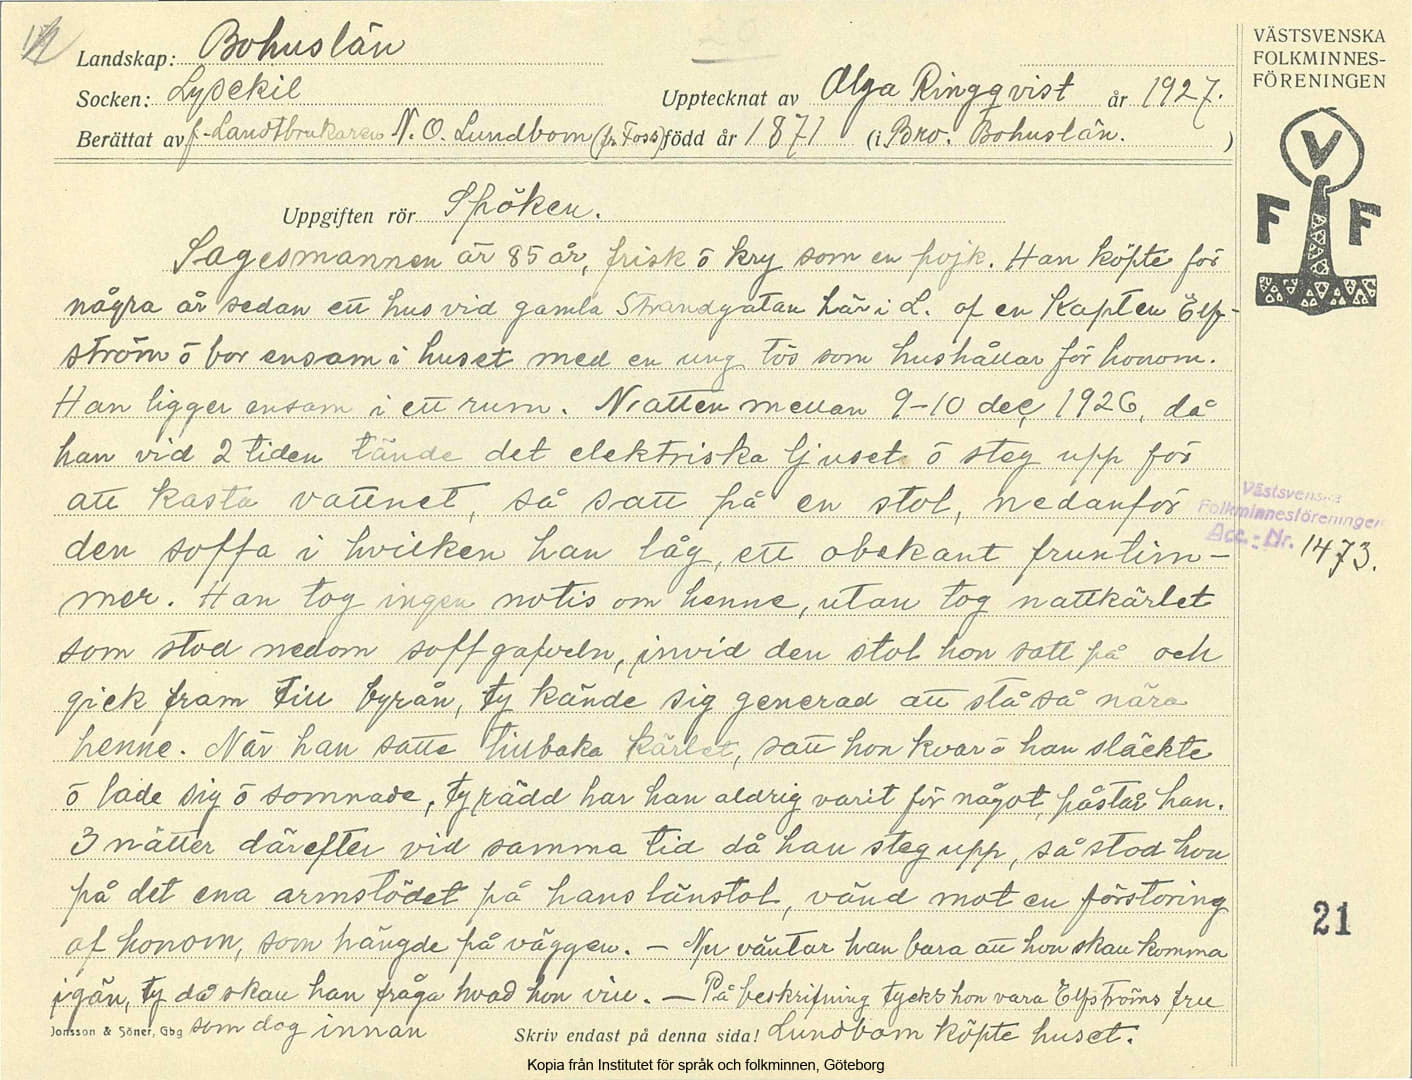 Landskap: Bohuslän
Socken: Lysekil
Upptecknat av Olga Ringqvist år 1927.
Berättat av f. Landtbrukaren N. O. Lundbom (fr. Foss) född år 1871 (i Bro. Bohuslän. )
VÄSTSVENSKA
FOLKMINNES-
FÖRENINGEN
V
F F
Uppgiften rör Spöken.
Sagesmannen är 85 år, frisk ō kry som en pojk. Han köpte för
några år sedan ett hus vid gamla Strandgatan här i L. af en Kapten Elf-
ström ō bor ensam i huset med en ung tös som hushållar för honom.
Han ligger ensam i ett rum. Natten mellan 9-10 dec, 1926, då
han vid 2 tiden tände det elektriska ljuset ō steg upp för
att kasta vattnet, så satt på en stol, nedanför
den soffa i hvilken han låg, ett obekant fruntim-
mer. Han tog ingen notis om henne, utan tog nattkärlet
som stod nedom soffgafveln, invid den stol hon satt på och
gick fram till byrån, ty kände sig generad att stå så nära
henne. När han satte tillbaka kärlet, satt hon kvar ō han släckte
ō lade sig ō somnade, ty rädd har han aldrig varit för något, påstår han.
3 nätter därefter vid samma tid då han steg upp, så stod hon
på det ena armstödet på hans länstol, vänd mot en förstoring
af honom, som hängde på väggen. – Nu väntar han bara att hon skall komma
igän, ty då skall han fråga hvad hon vill. – På beskrifning tycks hon vara Elfströms fru
som dog innan Lundbom köpte huset.
Västsvenska
Folkminnesföreningen
Acc.-Nr. 1473.
21
Jonsson & Söner, Gbg
Skriv endast på denna sida!
Kopia från Institutet för språk och folkminnen, Göteborg